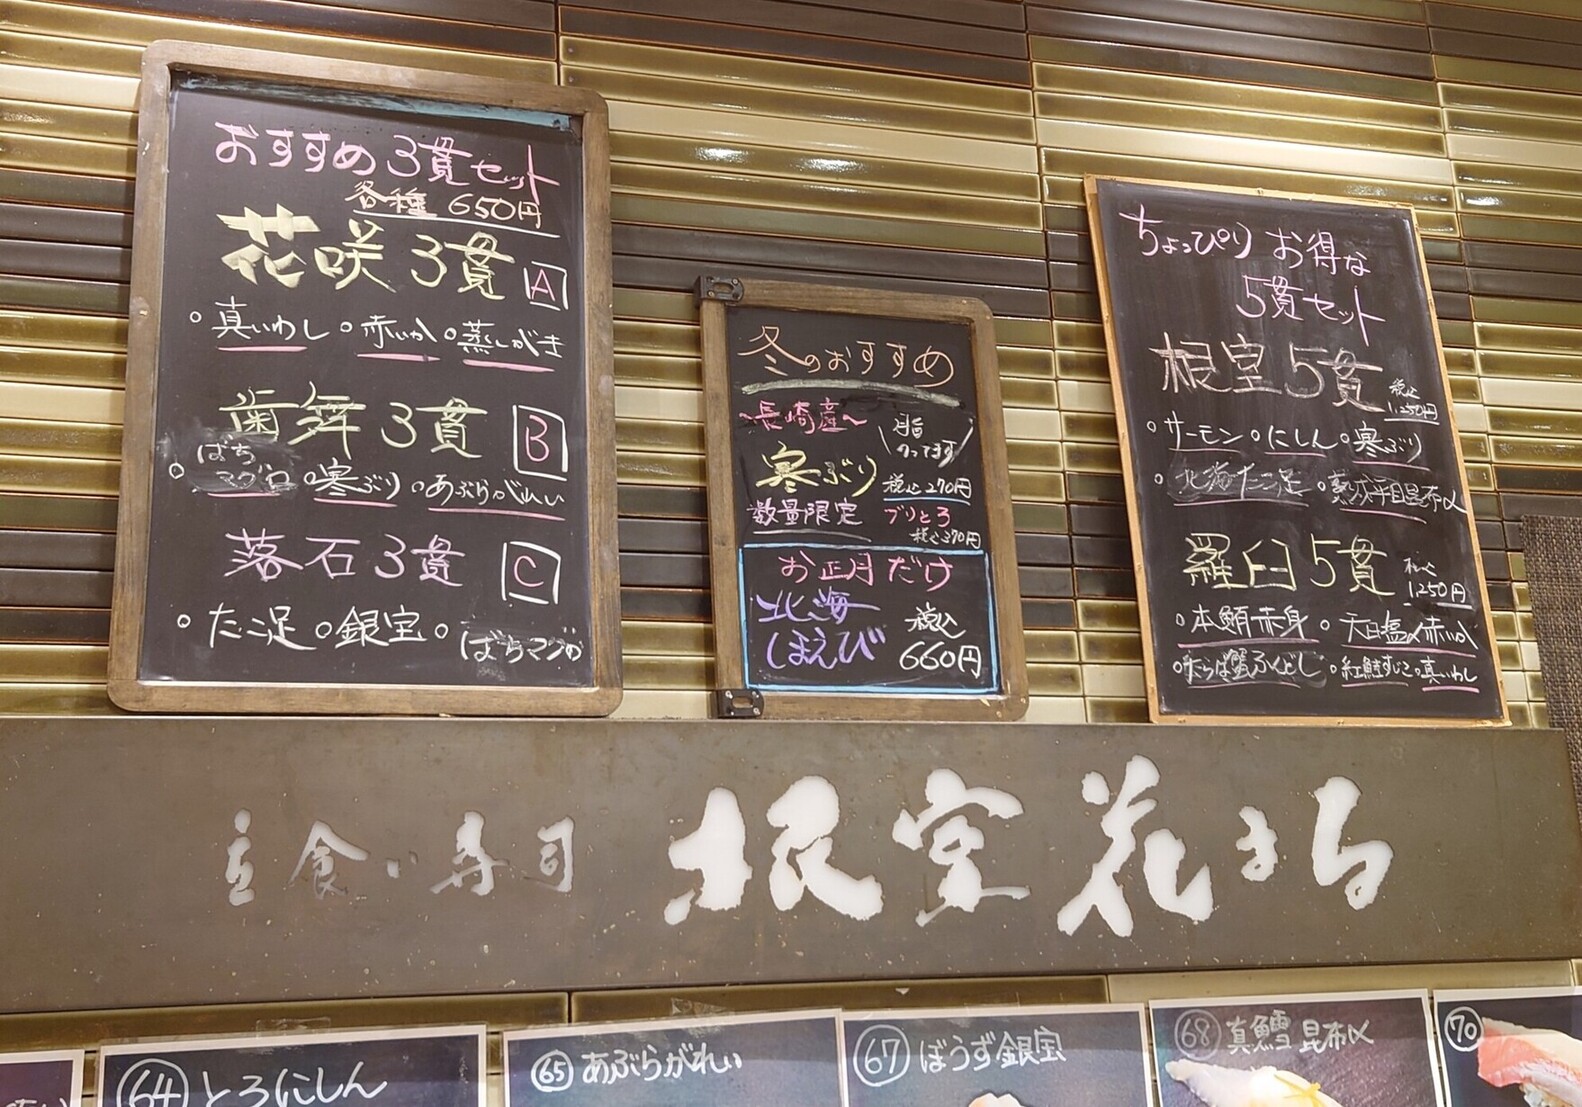 おすすめ3貫セット
各種 650円
花咲 3貫 A
○真いわし ○赤いか ○蒸しがき
歯舞 3貫 B
○ばちマグロ ○寒ぶり ○あぶらがれい
落石 3貫 C
○たこ足 ○銀宝 ○ばちマグロ
冬のおすすめ
~長崎産~
脂のってます
寒ぶり 税込270円
数量限定 ブリとろ
税込370円
お正月だけ
北海しまえび 税込660円
ちょっぴりお得な
5貫セット
根室5貫 税込1,250円
○サーモン ○にしん ○寒ぶり
○北海たこ足 ○熟成平目昆布〆
羅臼5貫 税込1,250円
○本鮪赤身 ○天日塩の赤いか
○たらば蟹ふんどし ○紅鮭すじこ ○真いわし
立食い寿司 根室花まる
64 とろにしん
65 あぶらがれい
67 ぼうず銀宝
68 真鱈 昆布〆
70